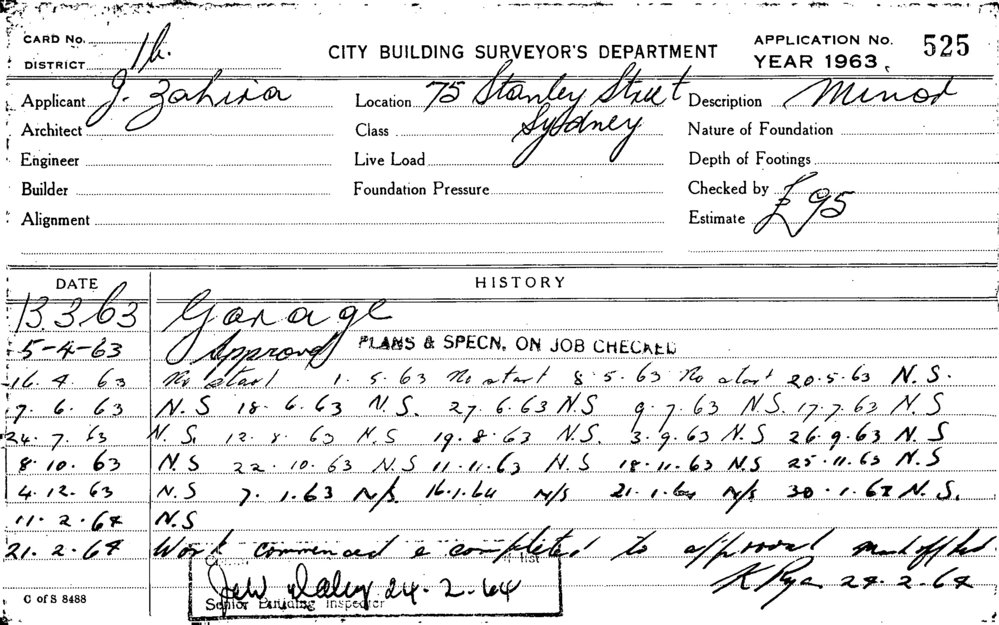 CARD No.
DISTRICT 1b.
CITY BUILDING SURVEYOR'S DEPARTMENT
APPLICATION No. 525
YEAR 1963
Applicant J. Zahira
Location 75 Stanley Street
Sydney
Description Minor
Architect
Class
Nature of Foundation
Engineer
Live Load
Depth of Footings
Builder
Foundation Pressure
Checked by
Alignment
Estimate £95
DATE HISTORY
13.3.63 Garage
5-4-63 Approved PLANS & SPECN. ON JOB CHECKED
16.4.63 No start 1.5.63 No start 8.5.63 No start 20.5.63 N.S.
7.6.63 N.S 18.6.63 N.S. 27.6.63 N.S 9.7.63 N.S. 17.7.63 N.S
24.7.63 N.S. 12.8.63 N.S 19.8.63 N.S. 3.9.63 N.S 26.9.63 N.S
8.10.63 N.S 22.10.63 N.S 11.11.63 N.S 18.11.63 N.S 25.11.63 N.S
4.12.63 N.S 7.1.63 N/S. 16.1.64 N/S 21.1.64 N/S 30.1.64 N.S.
11.2.64 N.S
21.2.64 Work commenced & completed to approval
K Rya 24.2.64
Daley 24.2.64
Senior Building Inspector
C of S 8488